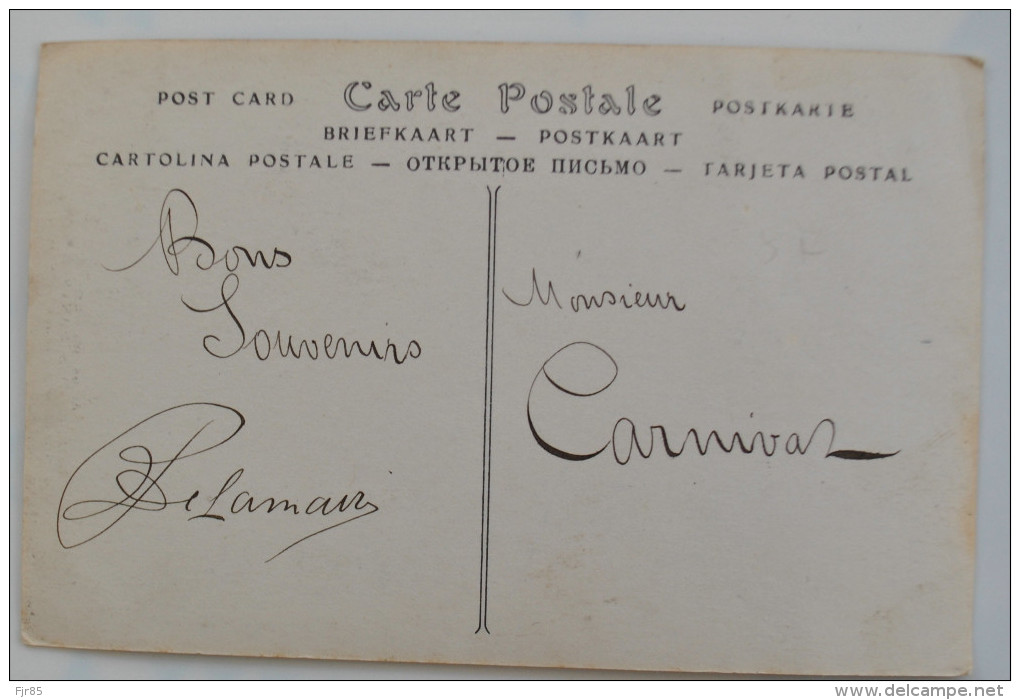 POST CARD Carte Postale POSTKARTE
BRIEFKAART — POSTKAART
CARTOLINA POSTALE — ОТКРЫТОЕ ПИСЬМО — TARJETA POSTAL
Bons
Souvenirs
Monsieur
Carnival
Fjr85
www.delcampe.net